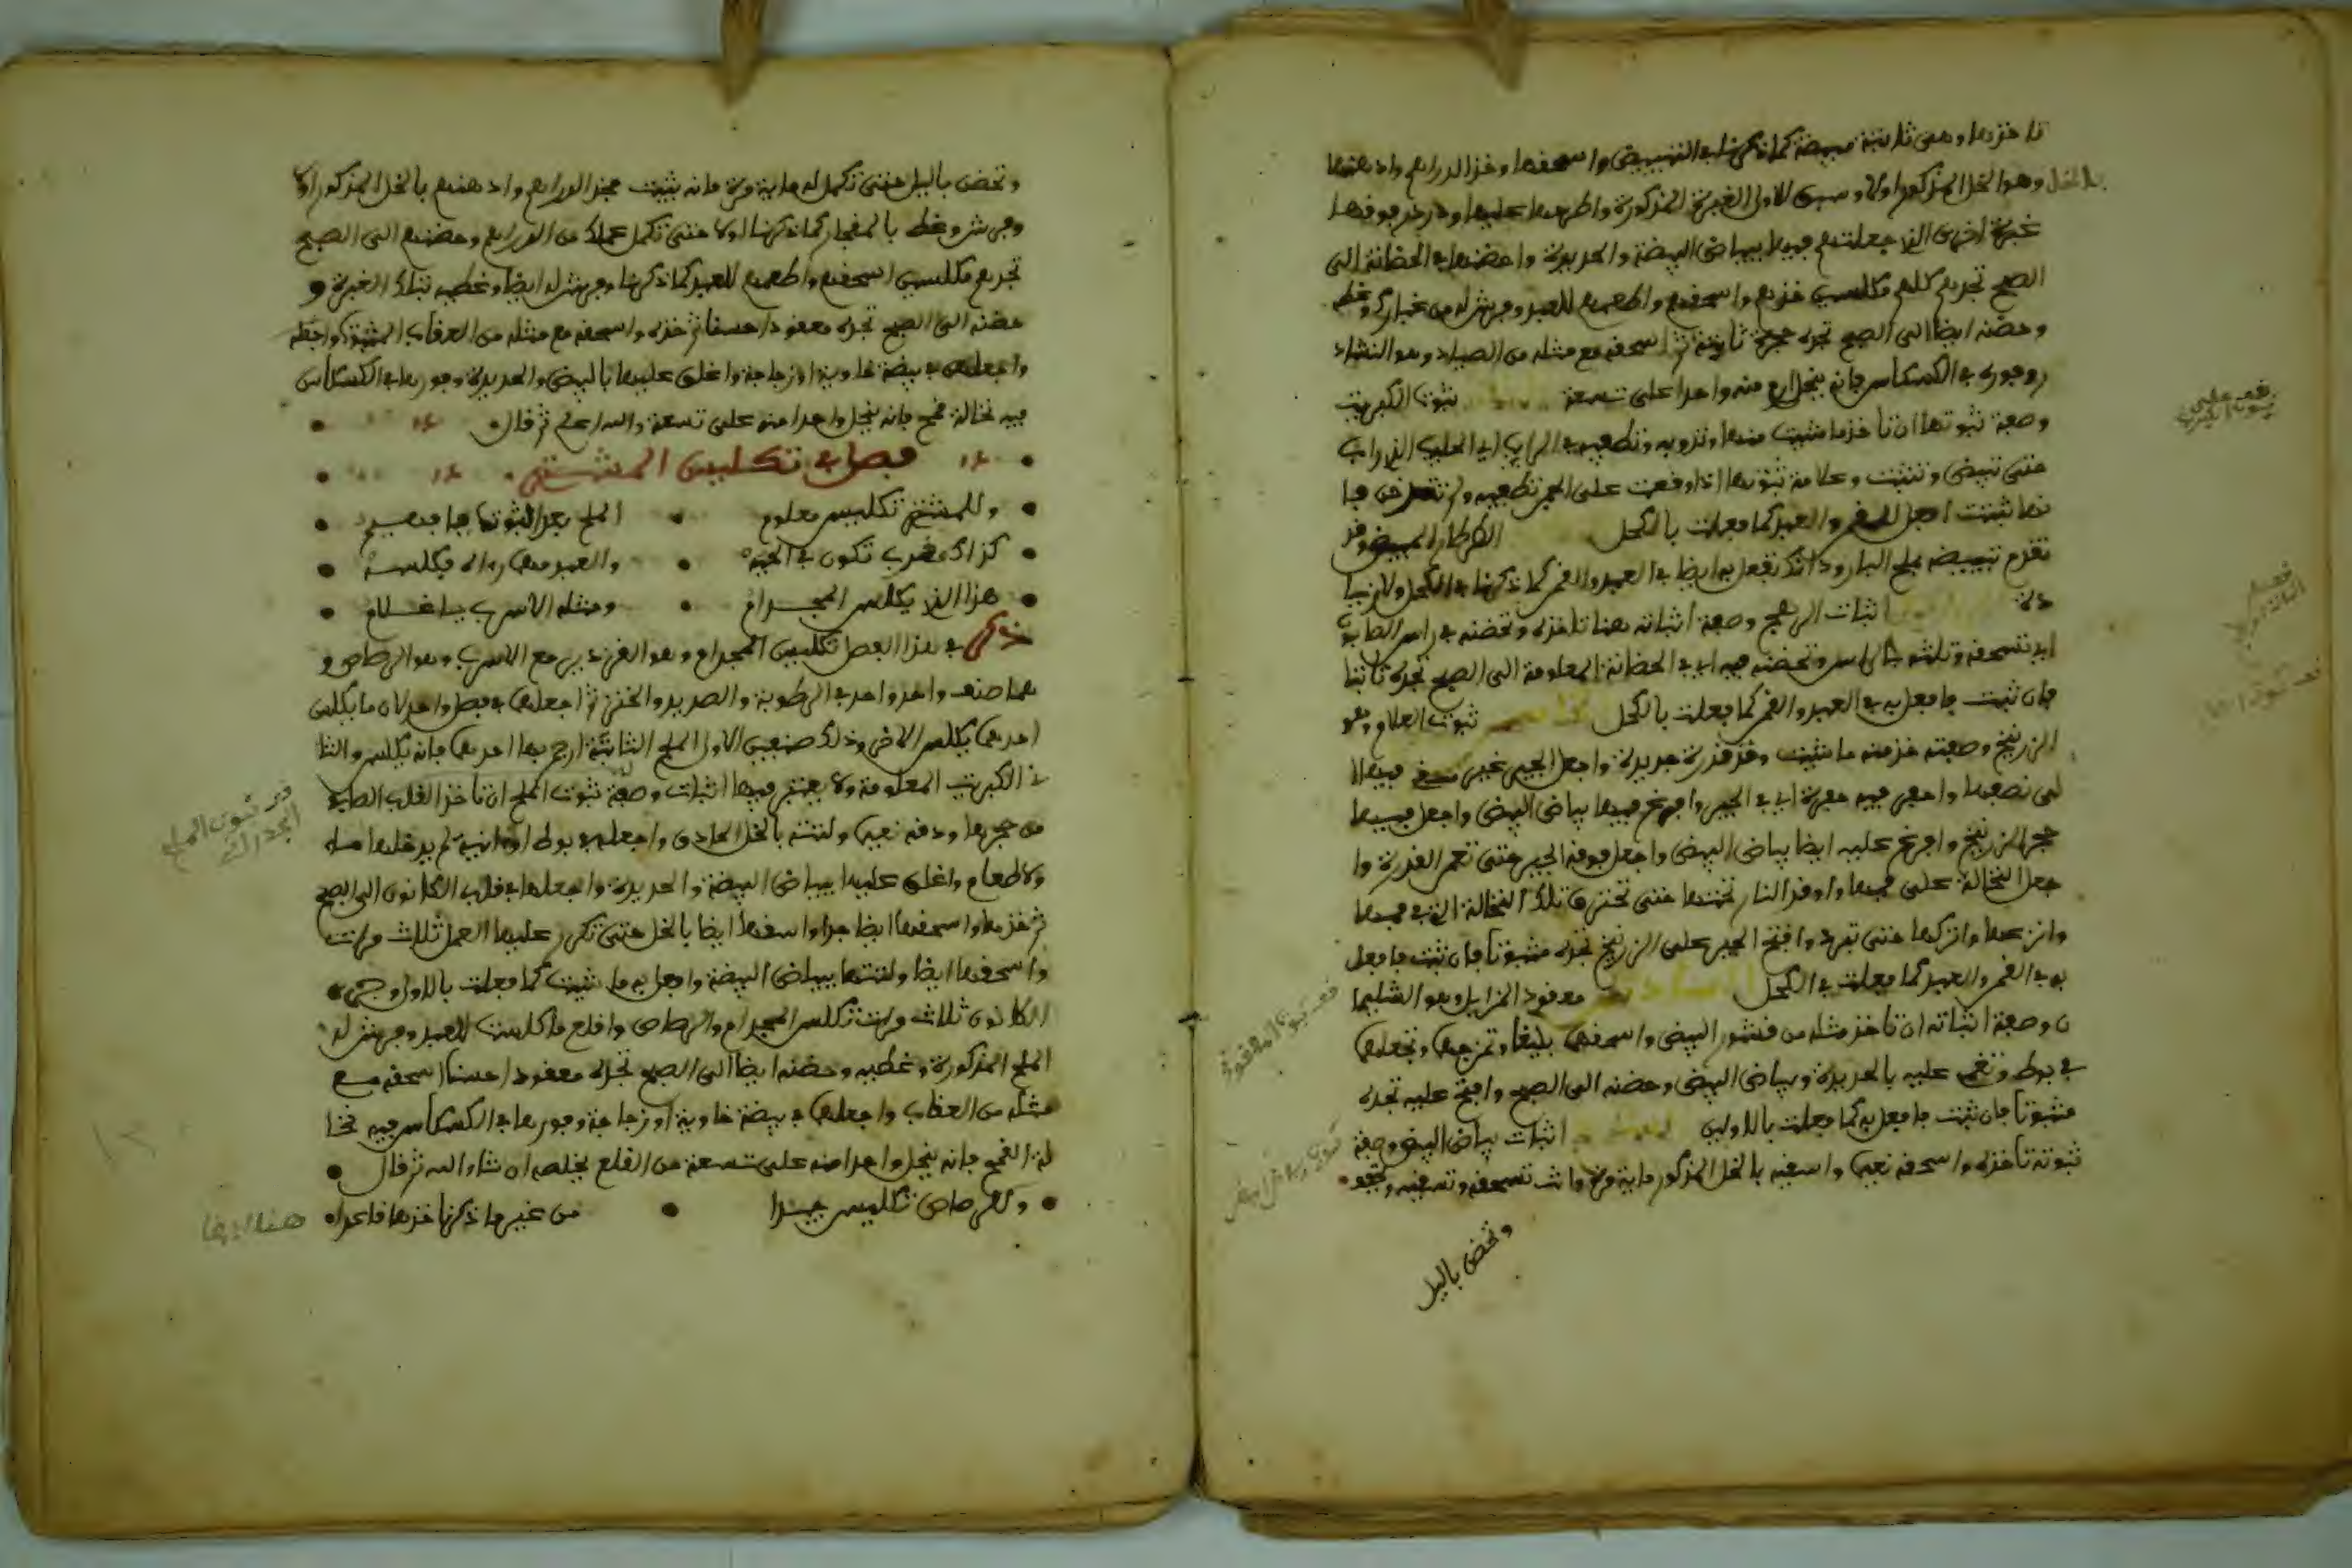 تاخذها وهى ثابتة مبيضة كما ذكرنا فى التبييض واسحقها وخذ الدراهم وادهنها
بالخل وهو الخل المذكور اولا الغبرة المذكورة واطرحها عليها فوقها
غبرة اخرى الذى جعلتهم فيها ببياض البيضة والحديدة واحضنها فى الحضانة الى
الصبح تجدهم كلهم مكلسين خذهم واسحقهم واطعمهم للعبد وفرش له من غبارك وغطه
وحضنه ايضا الى الصبح تجده حجرة ثابتة ثم اسحقه مع مثله من الصياد وهو النشاد
روفوره فى الكسكاس فانه ينحل ارم منه واحدا على تسعة ثبوت الكبريت
وصفة ثبوتها ان تاخذ ما شيت منها وتذوبه وتطفيه فى الرايب اى الحليب الذى راب
حتى تبيض وتثبت وعلامة ثبوتها اذا وقعت على الجمر تطفيه ولم تحترق فا
ذا ثبتت افعل للقمر والعبد كما فعلت بالكحل الطرطار المبيض وقد
تقدم تبييضه بملح البارود لذلك يفعل به ايضا فى العبد والقمر كما ذكرنا فى الكحل ولا زيا
دة اثبات الرهج وصفة اثباته هنا تاخذه وتحضنه فى راس الطابية
اى تسحقه وتلته وتحضنه فيه اى فى الحضانة المعلومة الى الصبح تجده ثابتا
فان ثبت فافعل به فى العبد والقمر كما فعلت بالكحل ثبوت العلام وهو
الزرنيخ وصفته خذ منه ما شيت وخذ قدرة جديدة واجعل الجير غير فيها
لى نصفها واحفر فيه حفرة اى فى الجير وافرغ فيها بياض البيض واجعل فيها
حجر الزرنيخ وافرغ عليه ايضا بياض البيض واجعل فوقه الجير حتى تعمر القدرة وا
جعل النخالة على فمها واوقد النار تحتها حتى تحترق تلك النخالة التى فى فمها
وانزعها واتركها حتى تبرد وافتح الجير على الزرنيخ تجده مثبوتا فان ثبت فافعل
به فى القمر والعبد كما فعلت فى الكحل معقود المزابل وهو الشليما
ن وصفة اثباته ان تاخذ مثله من قشور البيض واسحقهما بليغا وتمزجهما وتجعلهما
فى بوط وتغم عليه بالحديدة وبياض البيض وحضنه الى الصبح وافتح عليه تجده
مثبوتا فان ثبت فافعل به كما فعلت بالاولين اثبات بياض البيض وصفة
ثبوته تاخذه واسحقه نعيما واسقيه بالخل المذكور ماية مرة وانت تسحقه وتسقيه وتجففه
وتحضن باليل
وتحضن باليل حتى تكمل له ماية مرة فانه يثبت فخذ الدراهم وادهنهم بالخل المذكور اولا
وفرش وغط بالغبار كما ذكرنا اولا حتى تكمل عملك من الدراهم وحضنهم الى الصبح
تجدهم مكلسين اسحقهم واطعمهم للعبد كما ذكرنا وفرش له ايضا وغطيه بتلك الغبرة و
حضنه الى الصبح تجده معقودا حسنا ثم خذه واسحقه مع مثله من العقاب المثبوت
واجعلهم فى بيضة خاوية او زجاجة واغلق عليها بالبيض والحديدة وفورها فى الكسكاس
فيه نخالة قمح فانه ينحل واحدا منه على تسعة والله اعلم ثم قال
فصل فى تكليس المشترى
وللمشترى تكليس معلوم الملح بعد الثبوت يا فهيم
كذاك تكون فى الجير والعبد
هذا الذى يكلس المجدام ومثله الاسرب يا غلام
ذكر فى هذا الفصل تكليس المجدام وهو القزدير مع الاسرب وهو الرصاص و
هما صنف واحد واحد فى الرطوبة والصديد والخنز ثم اجعلهما فى فصل واحد لان ما يكلس
احدهما يكلس الاخر وذلك صنفين الاول الملح الثابتة ارجم بها احدهما فانه يكلس والثا
نى الكبريت المعلومة ولا يفتقر فيها اثبات وصفة ثبوت الملح ان تاخذ القلب الطيب
من حجرها ودقه نعيما ولته بالخل الحاذق واجعله فى بوط او انية لم يدخلها ماء
ولا طعام واغلق عليها ببياض البيضة والحديدة واجعلها فى قلب الكانون الى الصبح
ثم خذها واسحقها ايضا جدا واسقها ايضا بالخل حتى تكرر عليها العمل ثلاث مرات
واسحقها ايضا ولتتها ببياض البيضة وافعل به ما شيت كما فعلت بالاول وهى
الكانون ثلاث مرات تكلس المجدام والرصاص واقلع ما كلست للعبد وفرش له
الملح المذكورة وغطيه وحضنه ايضا الى الصبح تجده معقودا حسنا اسحقه مع
مثله من العقاب واجعلهما فى بيضة خاوية او زجاجة وفورها فى الكسكاس فيه نخا
لة القمح فانه ينحل واحدا منه على تسعة من القلع يخلصه ان شاء الله ثم قال
وللرصاص تكليس جيدا من غير ما ذكرنا خذها فاعدا